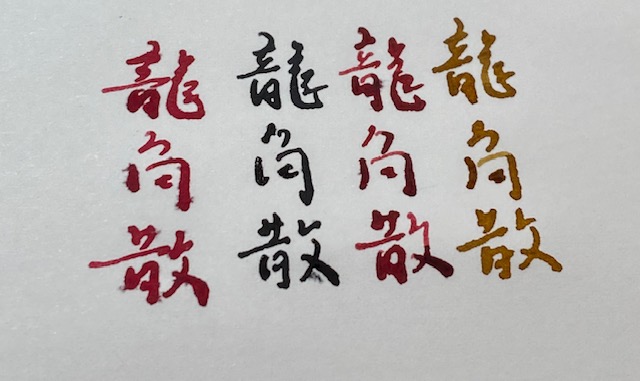 龍角散
龍角散
龍角散
龍角散